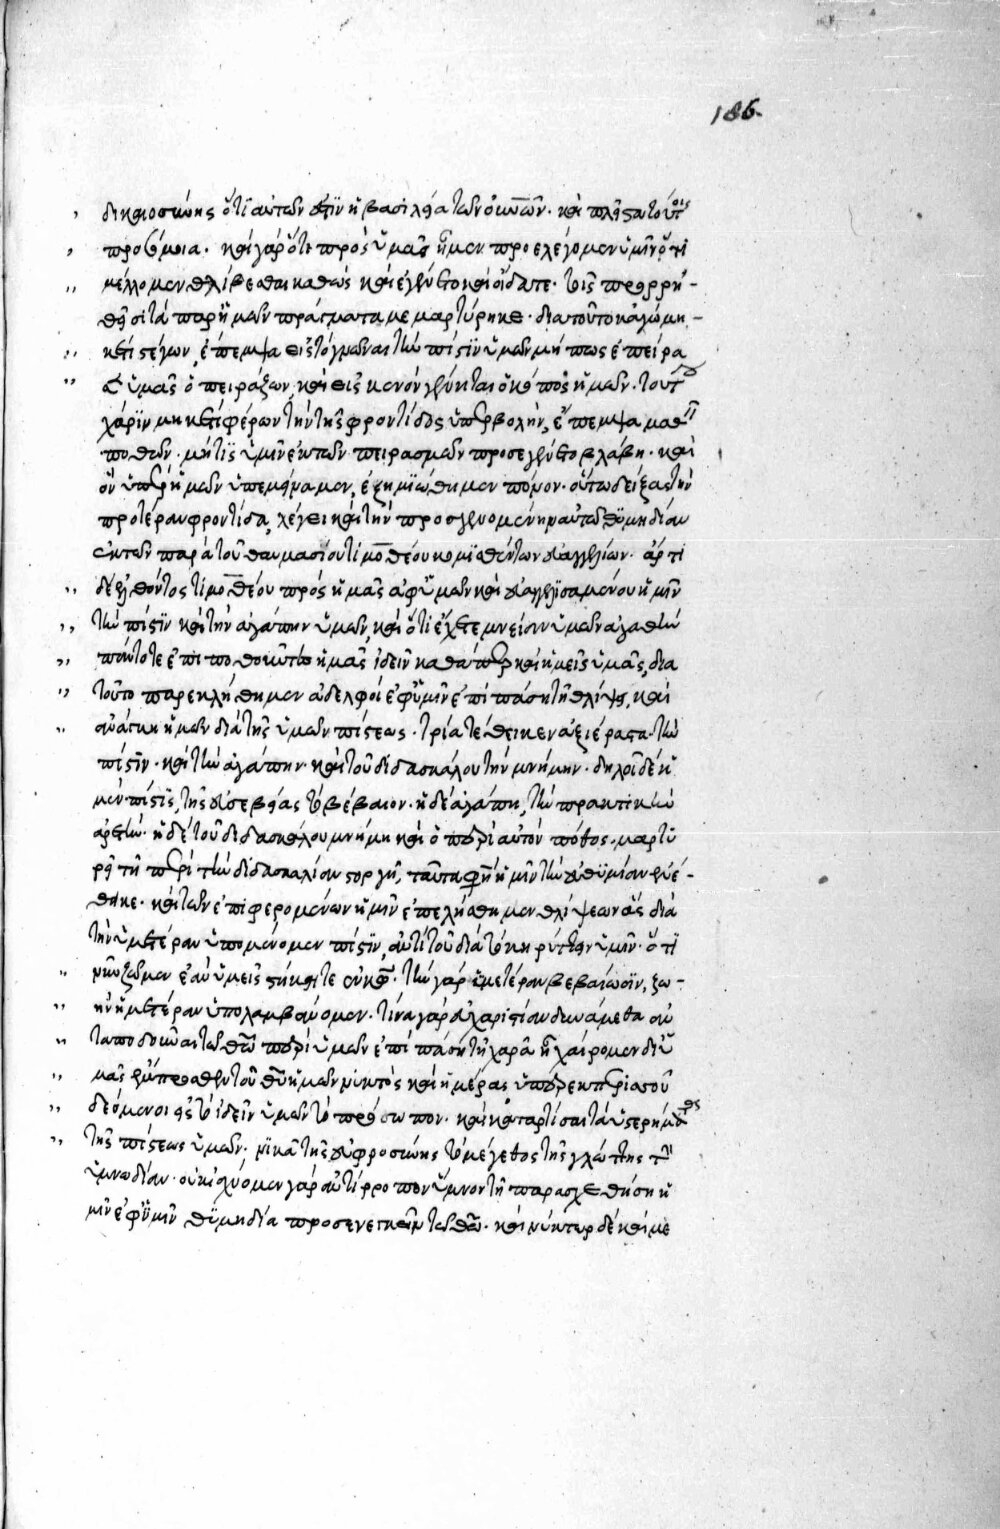 186
δικαιοσύνης ὅτι αὐτῶν ἐστὶν ἡ βασιλεία τῶν οὐνῶν. καὶ πλεῖστα τούτοις
προσόμοια. καὶ γὰρ ὅτε πρὸς ὑμᾶς ἦμεν προελέγομεν ὑμῖν ὅτι
μέλλομεν θλίβεσθαι καθὼς καὶ ἐγένετο καὶ οἴδατε. τοῖς προρρη-
θεῖσι τὰ παρ' ἡμῶν πράγματα μεμαρτύρηκε. διὰ τοῦτο κἀγὼ μη-
κέτι στέγων, ἔπεμψα εἰς τὸ γνῶναι τὴν πίστιν ὑμῶν μή πως ἐπείρα
σεν ὑμᾶς ὁ πειράζων, καὶ εἰς κενὸν γένηται ὁ κόπος ἡμῶν. τούτου
χάριν μηκέτι φέρων τὴν τῆς φροντίδος ὑπερβολὴν, ἔπεμψα μαθεῖν
ποθῶν. μή τις ὑμῖν ἐκ τῶν πειρασμῶν προσεγένετο βλάβη. καὶ
ὃν ὑπὲρ ἡμῶν ὑπεμείναμεν, ἐζημιώθημεν πόνον. οὕτω δείξας τὴν
προτέραν φροντίδα, λέγει καὶ τὴν προσγενομένην αὐτῶ θυμηδίαν
ἐκ τῶν παρὰ τοῦ θαυμασίου τιμοθέου κομισθέντων εὐαγγελίων. ἄρτι
δὲ ἐλθόντος τιμοθέου πρὸς ἡμᾶς ἀφ' ὑμῶν καὶ εὐαγγελισαμένου ἡμῖν
τὴν πίστιν καὶ τὴν ἀγάπην ὑμῶν, καὶ ὅτι ἔχετε μνείαν ὑμῶν ἀγαθὴν
πάντοτε ἐπιποθοῦντες ἡμᾶς ἰδεῖν καθάπερ καὶ ἡμεῖς ὑμᾶς, διὰ
τοῦτο παρεκλήθημεν ἀδελφοὶ ἐφ' ὑμῖν ἐπὶ πάσῃ τῇ θλίψει, καὶ
ἀνάγκῃ ἡμῶν διὰ τῆς ὑμῶν πίστεως. τρία τέθεικεν ἀξιέραστα. τὴν
πίστιν. καὶ τὴν ἀγάπην. καὶ τοῦ διδασκάλου τὴν μνήμην. δηλοῖ δὲ ἡ
μὲν πίστις, τῆς εὐσεβείας τὸ βέβαιον. ἡ δὲ ἀγάπη, τὴν πρακτικὴν
ἀρετήν. ἡ δὲ τοῦ διδασκάλου μνήμη καὶ ὁ περὶ αὐτὸν πόθος, μαρτυ
ρεῖ τῇ περὶ τὴν διδασκαλίαν στοργῇ, ταῦτα φησὶ ἡμῖν τὴν εὐθυμίαν ἐνέ-
θηκε. καὶ τῶν ἐπιφερομένων ἡμῖν ἐπελήσθημεν θλίψεων ἃς διὰ
τὴν ὑμετέραν ὑπομένομεν πίστιν, ἀντὶ τοῦ διὰ τὸ κηρύττειν ὑμῖν. ὅτι
νῦν ζῶμεν ἐὰν ὑμεῖς στήκητε ἐν κῶ. τὴν γὰρ ὑμετέραν βεβαίωσιν, ζω-
ὴν ἡμετέραν ὑπολαμβάνομεν. τίνα γὰρ εὐχαριστίαν δυνάμεθα ἀν
ταποδοῦναι τῶ θῶ περὶ ὑμῶν ἐπὶ πάσῃ τῇ χαρᾷ ᾗ χαίρομεν δι' ὑ
μᾶς ἔμπροσθεν τοῦ θῦ ἡμῶν νυκτὸς καὶ ἡμέρας ὑπὲρ ἐκπερισσοῦ
δεόμενοι εἰς τὸ ἰδεῖν ὑμῶν τὸ πρόσωπον. καὶ καταρτίσαι τὰ ὑστερήματα
τῆς πίστεως ὑμῶν. νικᾶ τῆς εὐφροσύνης τὸ μέγεθος τῆς γλώττης τὴν
ὑμνωδίαν. οὐκ ἰσχύομεν γὰρ ἀντίρροπον ὕμνον τῇ παρασχεθείσῃ ἡ
μῖν ἐφ' ὑμῖν θυμηδία προσενεγκεῖν τῶ θῶ. καὶ νύκτωρ δὲ καὶ με